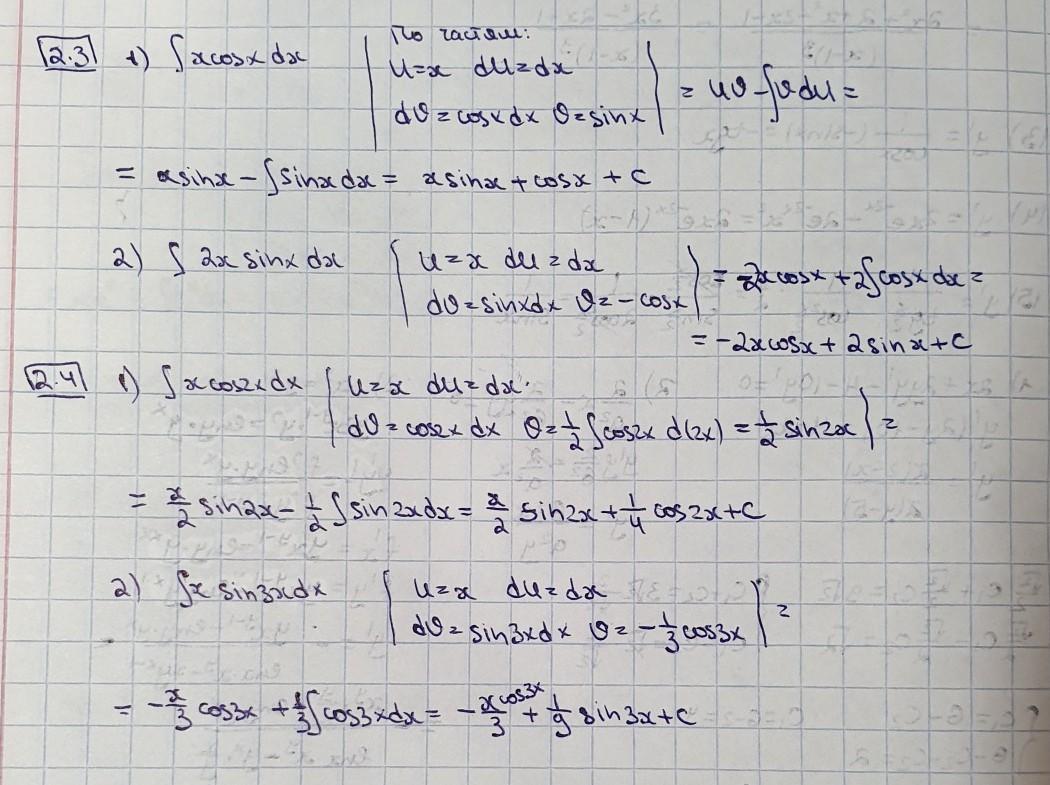 По частям:
2.3 1) ∫xcosx dx | u=x du=dx
dv=cosxdx v=sinx | = uv-∫vdu=
= xsinx - ∫sinxdx = xsinx + cosx + C
2) ∫ 2x sinx dx | u=x du=dx
dv=sinxdx v=-cosx | = -2xcosx + 2∫cosx dx =
= -2xcosx + 2sinx + C
2.4 1) ∫xcos2xdx | u=x du=dx
dv=cos2x dx v=1/2 ∫cos2x d(2x) = 1/2 sin2x | =
= x/2 sin2x - 1/2 ∫sin2xdx = x/2 sin2x + 1/4 cos2x + C
2) ∫x sin3xdx | u=x du=dx
dv=sin3xdx v=-1/3 cos3x | =
= -x/3 cos3x + 1/3 ∫cos3xdx = -xcos3x/3 + 1/9 sin3x + C